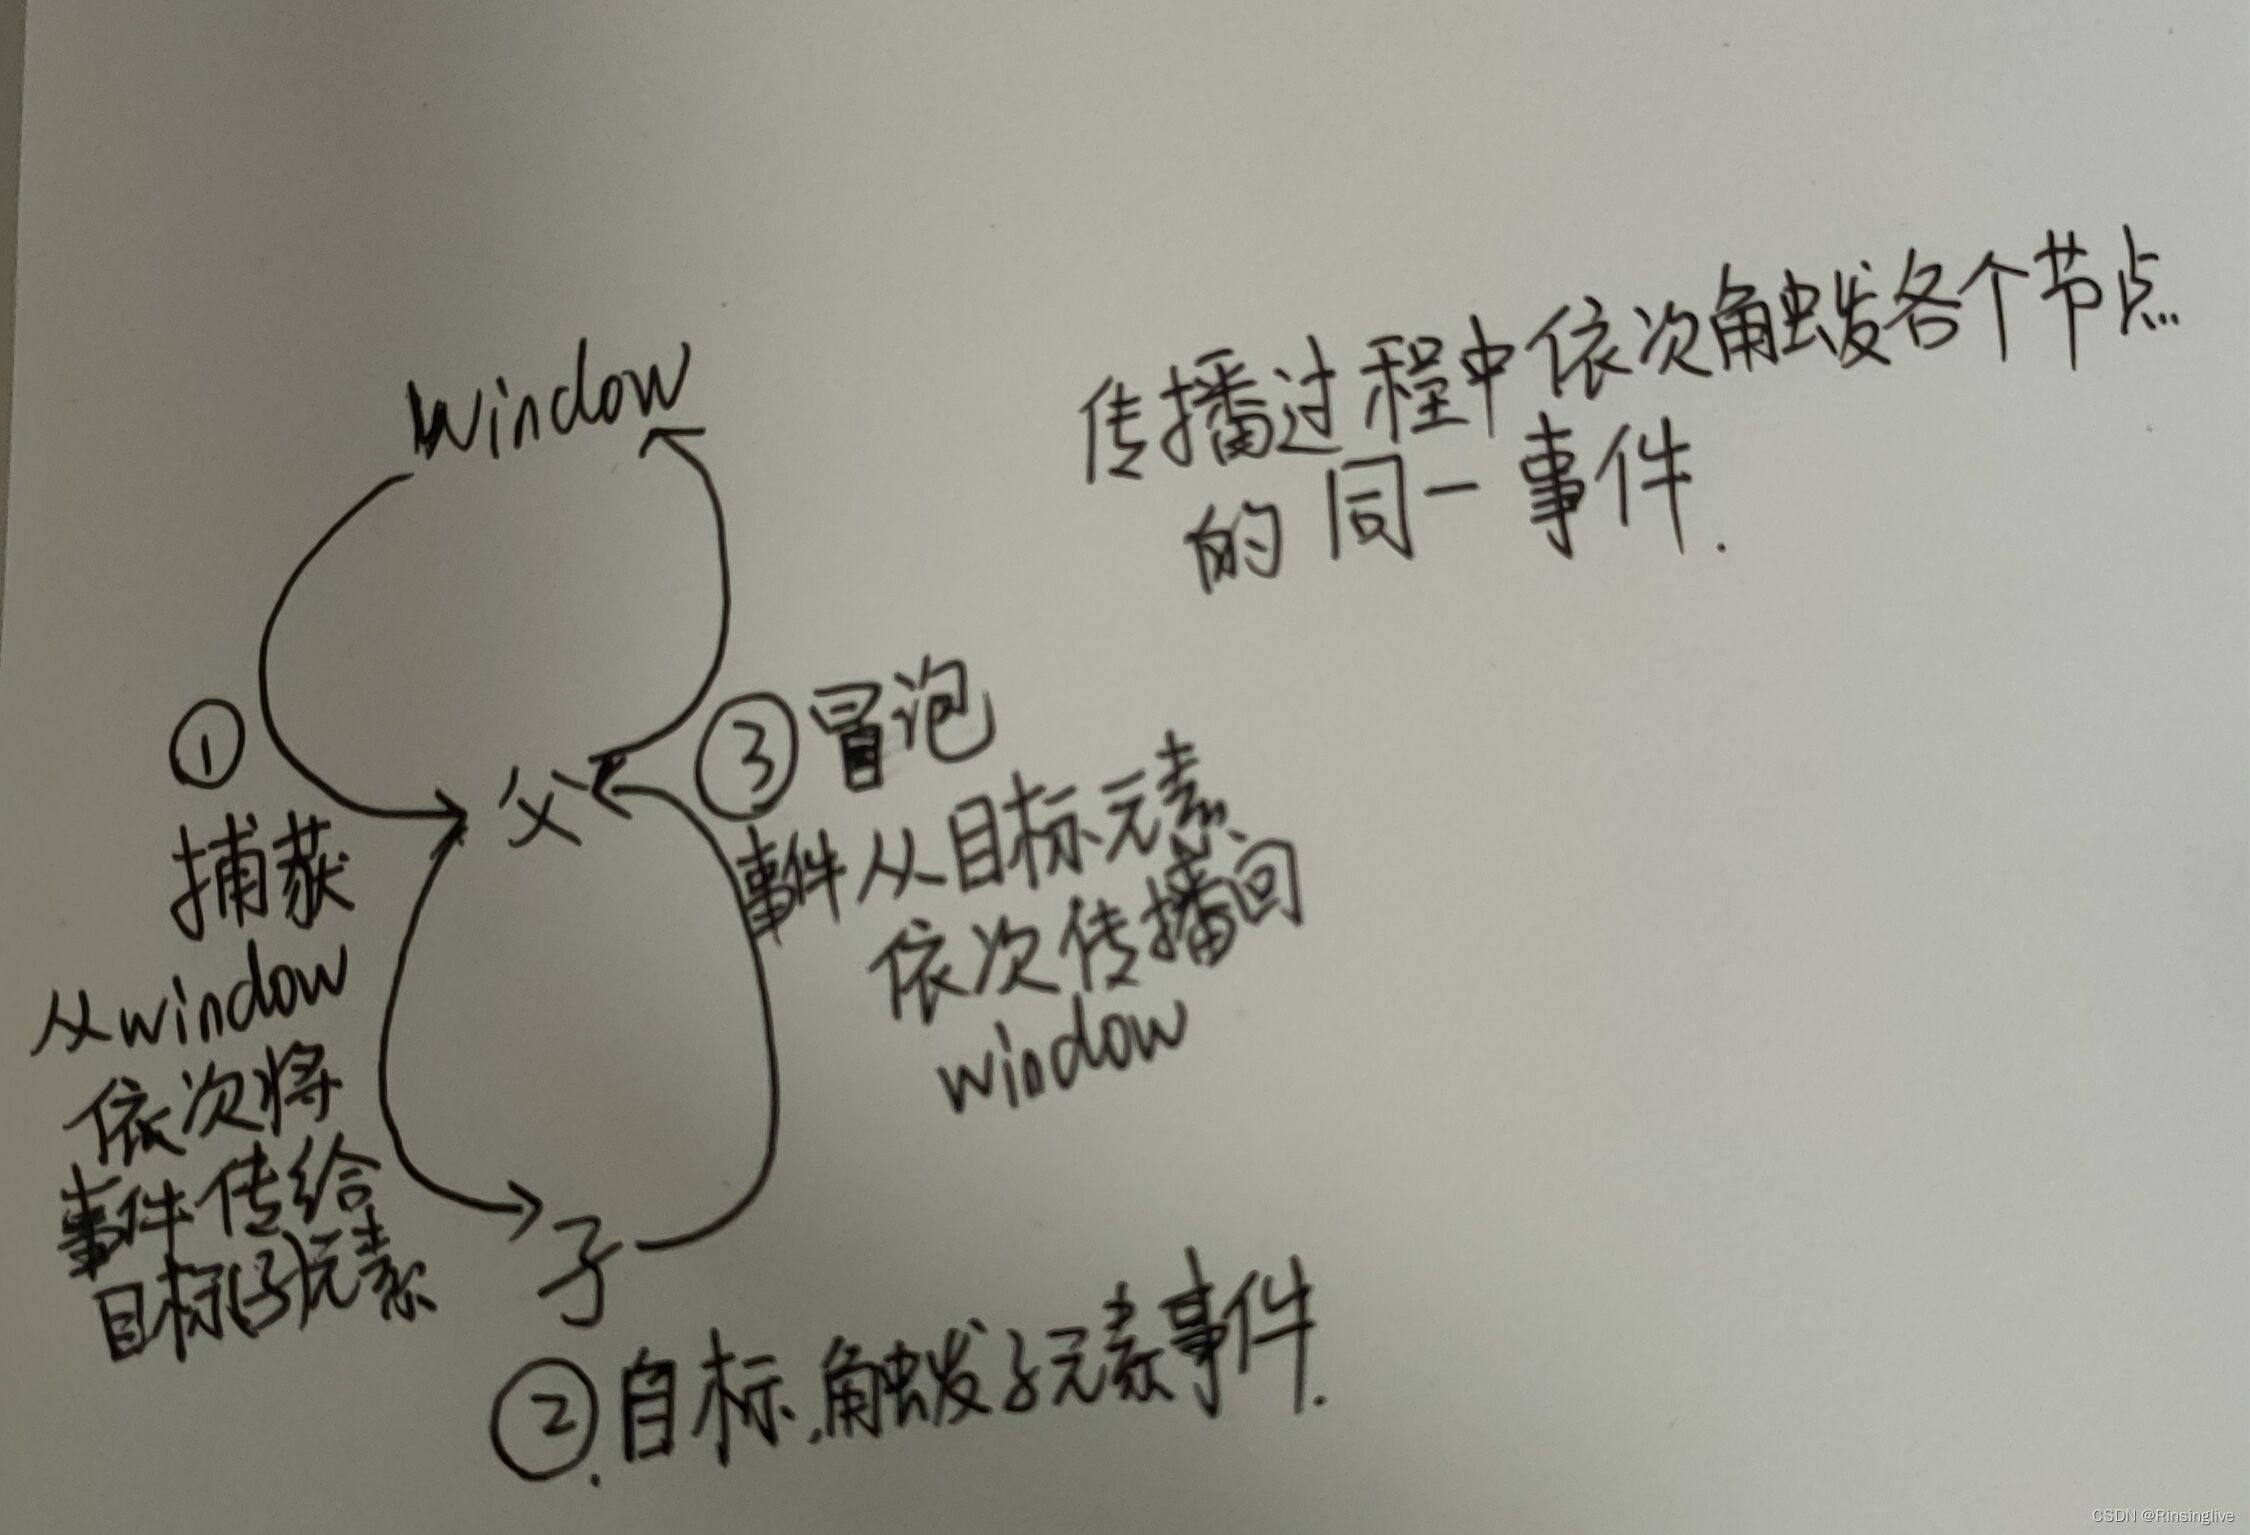 window
传播过程中依次触发各个节点
的同一事件.
①
捕获
从window
依次将
事件传给
目标(子)元素
父
③冒泡
事件从目标元素
依次传播回
window
子
②.目标.触发子元素事件.
CSDN @Rinsinglive